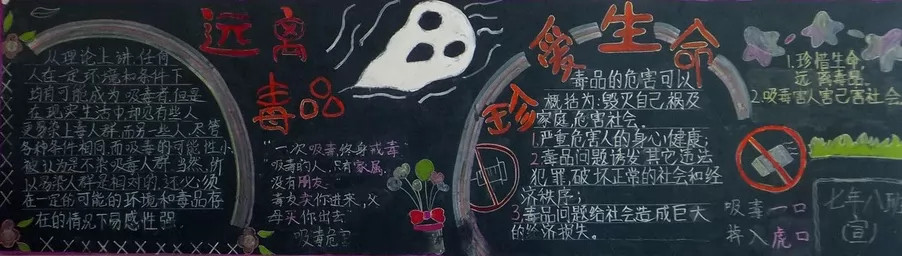 远离
毒品
从理论上讲,任何
人在一定环境和条件下
均有可能成为吸毒者,但是
在现实生活中却只有些人
更易染上毒人群,而另一些人,尽管
各种条件相同,而吸毒的可能性小
被认为是不染吸毒人群.当然,所
以易染人群是相对的,还必须
在一定的可能的环境和毒品存
在的情况下易感性强.
"一次吸毒,终身戒毒"
"吸毒的人,只有家属,
没有朋友."
"毒友卖你进来,父
母买你出去"
吸毒危害
珍爱生命
毒品的危害可以
概括为:毁灭自己,祸及
家庭,危害社会.
1.严重危害人的身心健康;
2.毒品问题诱发其它违法
犯罪,破坏正常的社会和经
济秩序;
3.毒品问题给社会造成巨大
的经济损失。
1.珍惜生命,
远离毒品
2.吸毒害人害己害社会
吸毒一口
掉入虎口
七年八班
(宣)